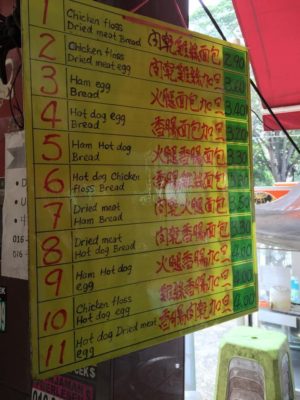 1 Chicken floss
Dried meat Bread 肉乾雞絲面包 2.90
2 Chicken floss
Dried meat egg 肉乾雞絲加旦
3 Ham egg
Bread 火腿面包加旦 3.40
4 Hot dog egg
Bread 香腸面包加旦 3.20
5 Ham Hot dog
Bread 火腿香腸面包 3.30
6 Hot dog Chicken
floss Bread 香腸雞絲面包
7 Dried meat
Ham Bread 肉乾火腿面包 3.50
8 Dried meat
Hot dog Bread 肉乾香腸面包
9 Ham Hot dog
egg 火腿香腸加旦
10 Chicken floss
Hot dog egg 雞絲香腸加旦
11 Hot dog Dried meat
egg 香腸肉乾加旦
016